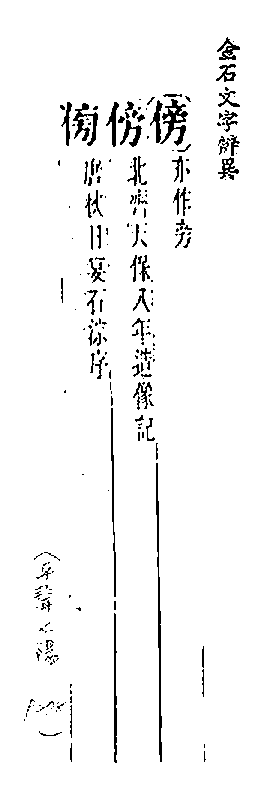 金石文字辨異
(傍)亦作旁
傍 北齊天保八年造像記
唐秋日宴石淙序
(平聲 陽